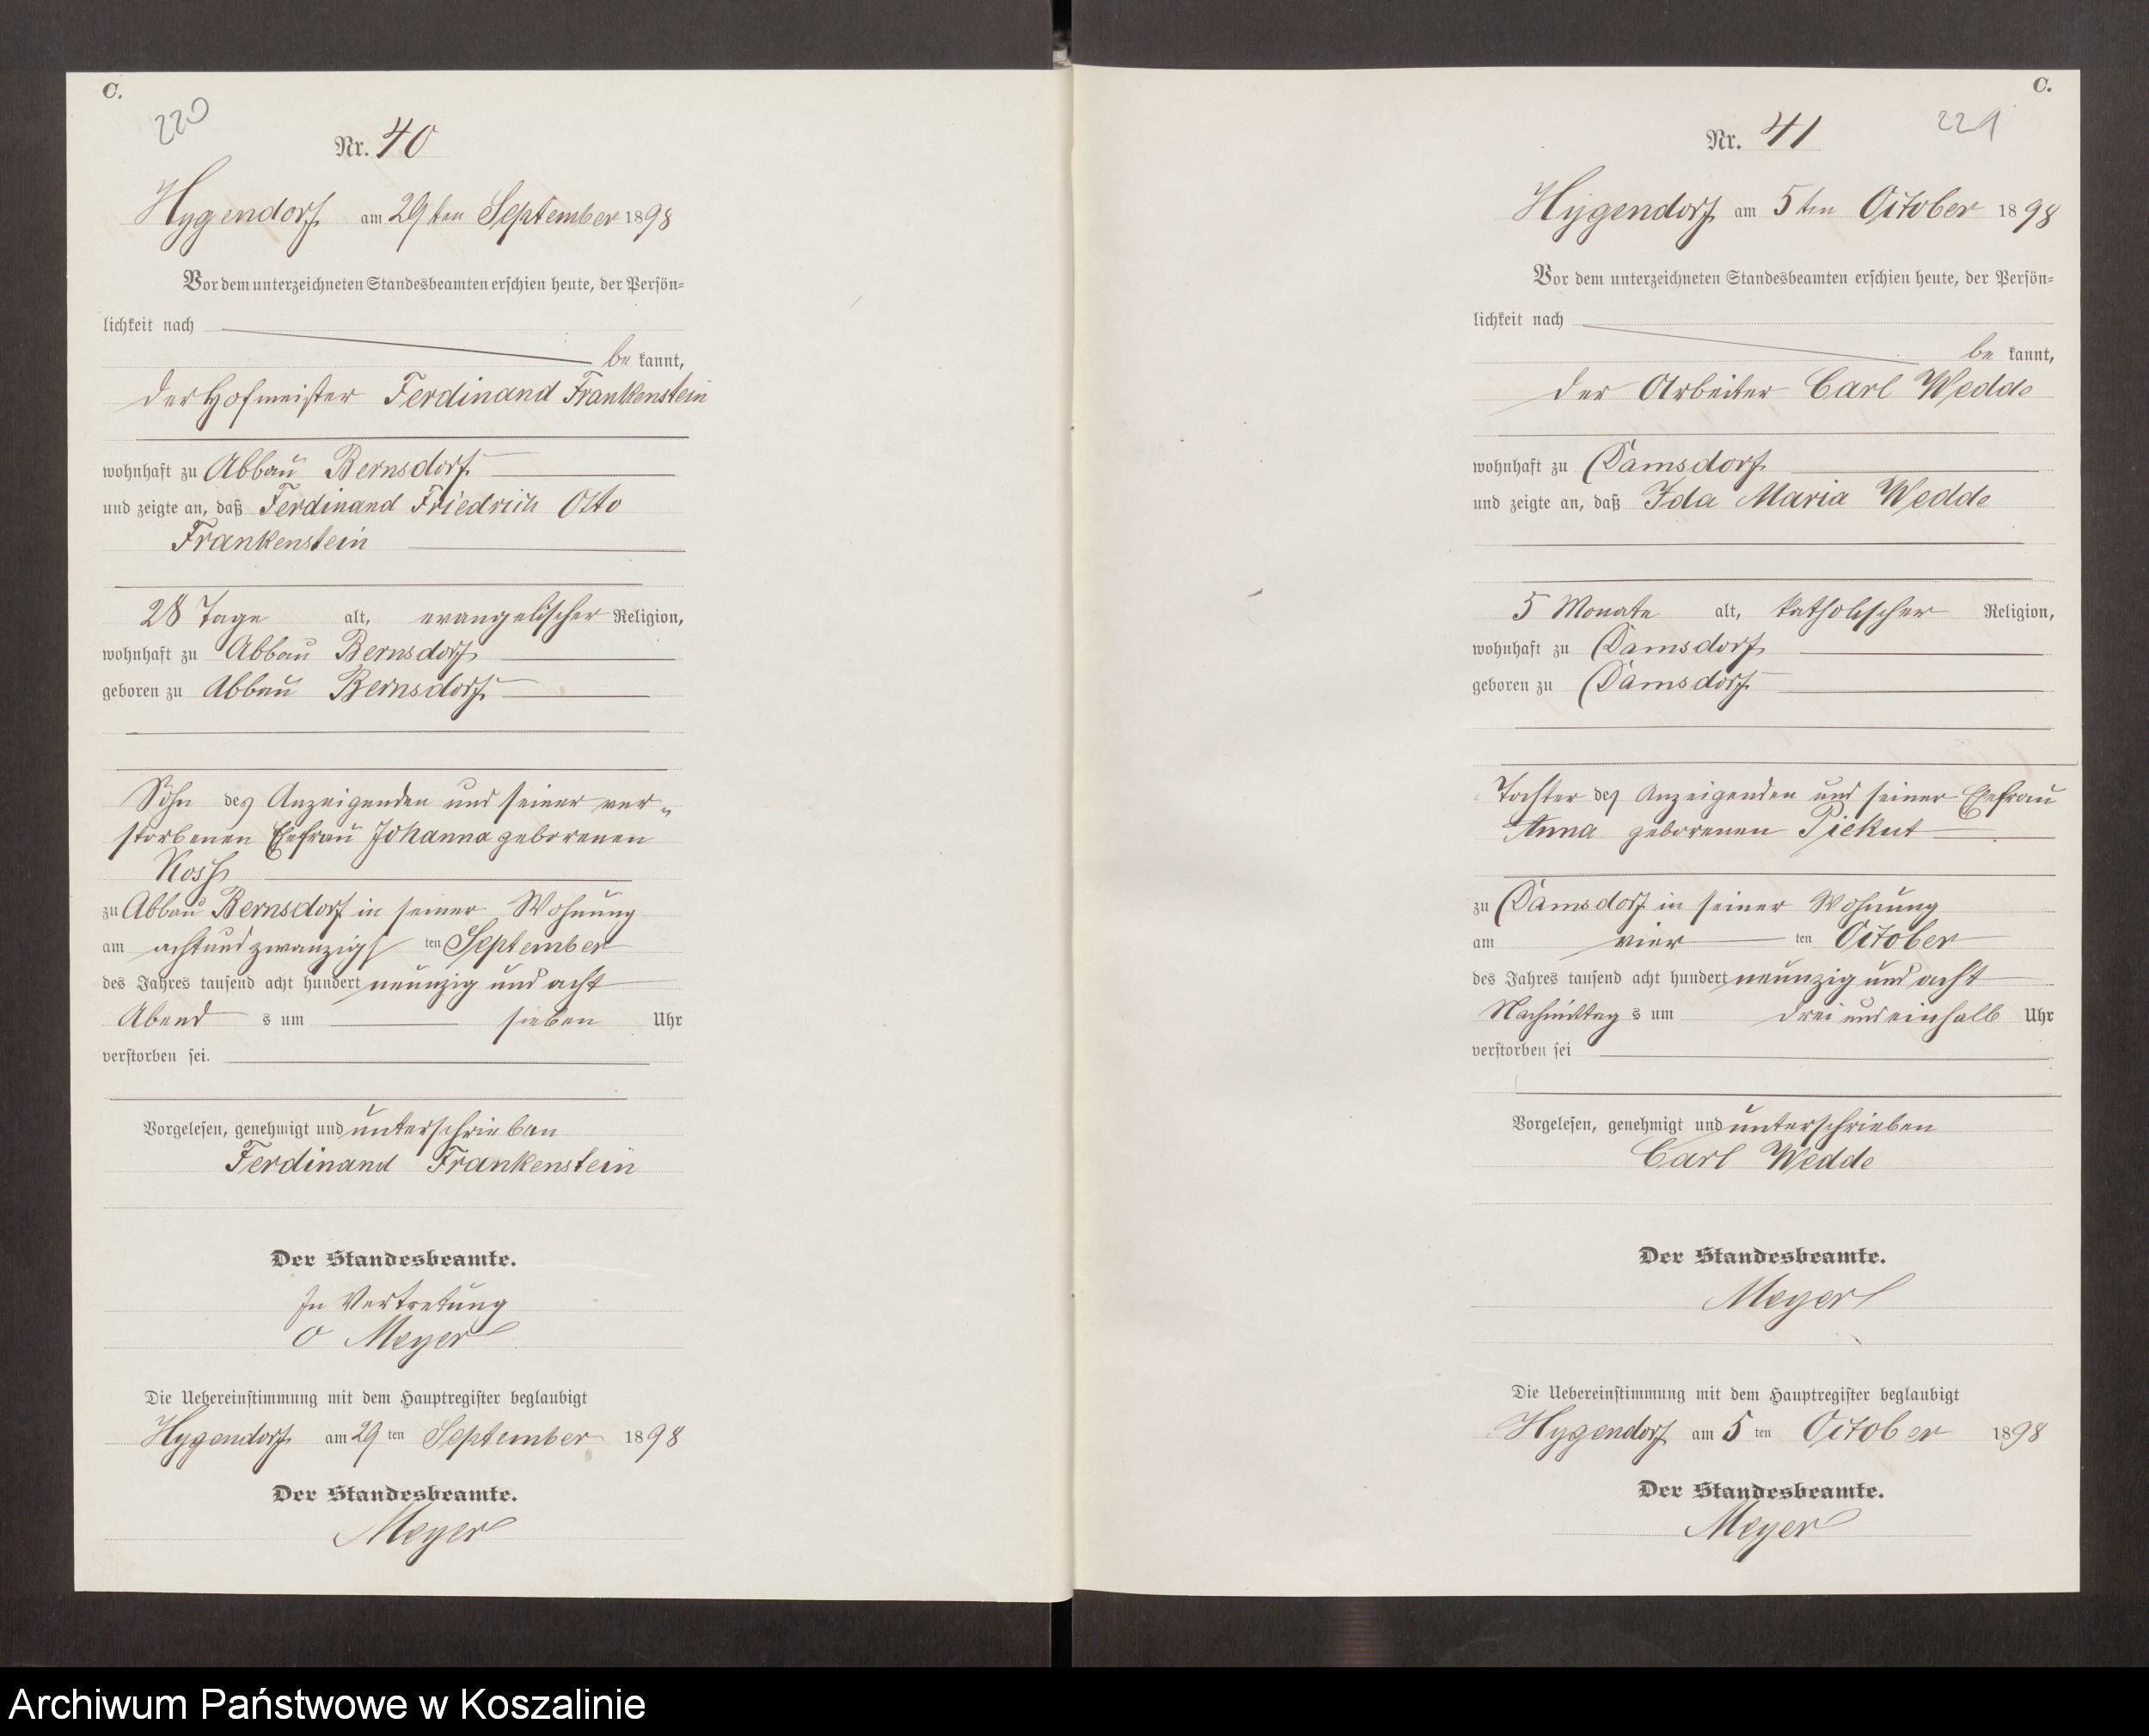 C.
220
Nr. 40
Hygendorf am 29ten September 1898
Vor dem unterzeichneten Standesbeamten erschien heute, der Persön-
lichkeit nach
be kannt,
der Hofmeister Ferdinand Frankenstein
wohnhaft zu Abbau Bernsdorf
und zeigte an, daß Ferdinand Friedrich Otto
Frankenstein
28 Tage alt, evangelischer Religion,
wohnhaft zu Abbau Bernsdorf
geboren zu Abbau Bernsdorf
Sohn des Anzeigenden und seiner ver-
storbenen Ehefrau Johanna geborenen
zu Abbau Bernsdorf in seiner Wohnung
am achtundzwanzigs ten September
des Jahres tausend acht hundert neunzig und acht
Abend s um sieben Uhr
verstorben sei.
Vorgelesen, genehmigt und unterschrieben
Ferdinand Frankenstein
Der Standesbeamte.
In Vertretung
O Meyer
Die Uebereinstimmung mit dem Hauptregister beglaubigt
Hygendorf am 29 ten September 1898
Der Standesbeamte.
Meyer
C.
221
Nr. 41
Hygendorf am 5ten October 1898
Vor dem unterzeichneten Standesbeamten erschien heute, der Persön-
lichkeit nach
be kannt,
der Arbeiter Carl Wedde
wohnhaft zu Damsdorf
und zeigte an, daß Ida Maria Wedde
5 Monate alt, katholischer Religion,
wohnhaft zu Damsdorf
geboren zu Damsdorf
Tochter des Anzeigenden und seiner Ehefrau
Anna geborenen Piekut
zu Damsdorf in seiner Wohnung
am vier ten October
des Jahres tausend acht hundert neunzig und acht
Nachmittag s um drei und einhalb Uhr
verstorben sei
Vorgelesen, genehmigt und unterschrieben
Carl Wedde
Der Standesbeamte.
Meyer
Die Uebereinstimmung mit dem Hauptregister beglaubigt
Hygendorf am 5 ten October 1898
Der Standesbeamte.
Meyer
Archiwum Państwowe w Koszalinie